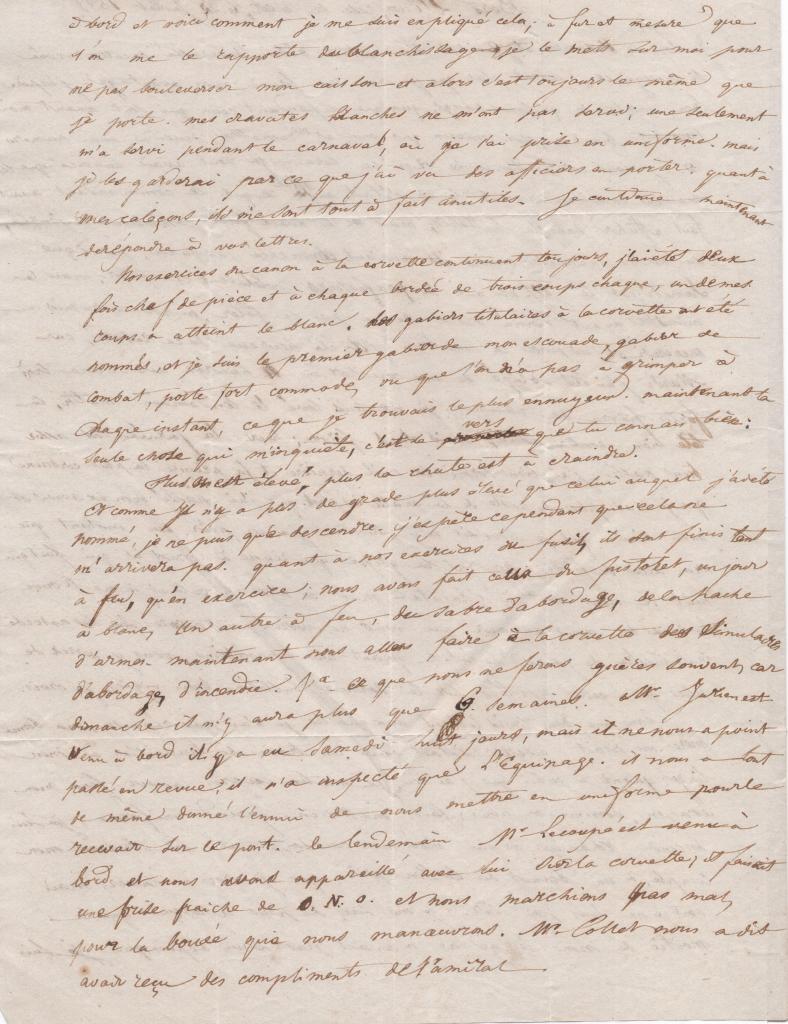 à bord et voici comment je me suis expliqué cela; à fur et mesure que
l'on me le rapporte du blanchissage je le mets sur moi pour
ne pas bouleverser mon caisson et alors c'est toujours le même que
je porte. mes cravates blanches ne m'ont pas servi; une seulement
m'a servi pendant le carnaval, où je l'ai prise en uniforme. mais
je les garderai par ce que j'ai vu des officiers en porter. quant à
mes caleçons, ils me sont tout à fait inutiles. Je continue maintenant
de répondre à vos lettres.
Nos exercices du canon à la corvette continuent toujours, j'ai été deux
fois chef de pièce et à chaque bordée de trois coups chaque, un de mes
coups a atteint le blanc. les gabiers titulaires à la corvette ont été
nommés, et je suis le premier gabier de mon escouade, gabier de
combat, poste fort commode, vu que l'on n'a pas à grimper à
chaque instant, ce que je trouvais le plus ennuyeux. maintenant la
seule chose qui m'inquiète, c'est le vers que tu connais bien:
Plus on est élevé, plus la chute est à craindre.
Et comme il n'y a pas de grade plus élevé que celui auquel j'ai été
nommé, je ne puis que descendre. j'espère cependant que cela ne
m'arrivera pas. quant à nos exercices du fusil, ils sont finis tant
à feu, qu'en exercice; nous avons fait celui du pistolet, un jour
à blanc, un autre à feu, du sabre d'abordage, de la hache
d'armes. maintenant nous allons faire à la corvette des simulacres
d'abordage, d'incendie. ce que nous ne ferons guères souvent, car
dimanche il n'y aura plus que 6 semaines. Mr. Jurien est
venu à bord il y a eu samedi huit jours, mais il ne nous a point
passé en revue; il n'a inspecté que l'Equipage. il nous a tout
de même donné l'ennui de nous mettre en uniforme pour le
recevoir sur le pont. le lendemain Mr. Lecoupé est venu à
bord et nous avons appareillé avec lui sur la corvette; il faisait
une brise fraiche de O. N. O. et nous marchions pas mal,
pour la bouée que nous manœuvrons. Mr. Collet nous a dit
avoir reçu des compliments de l'amiral